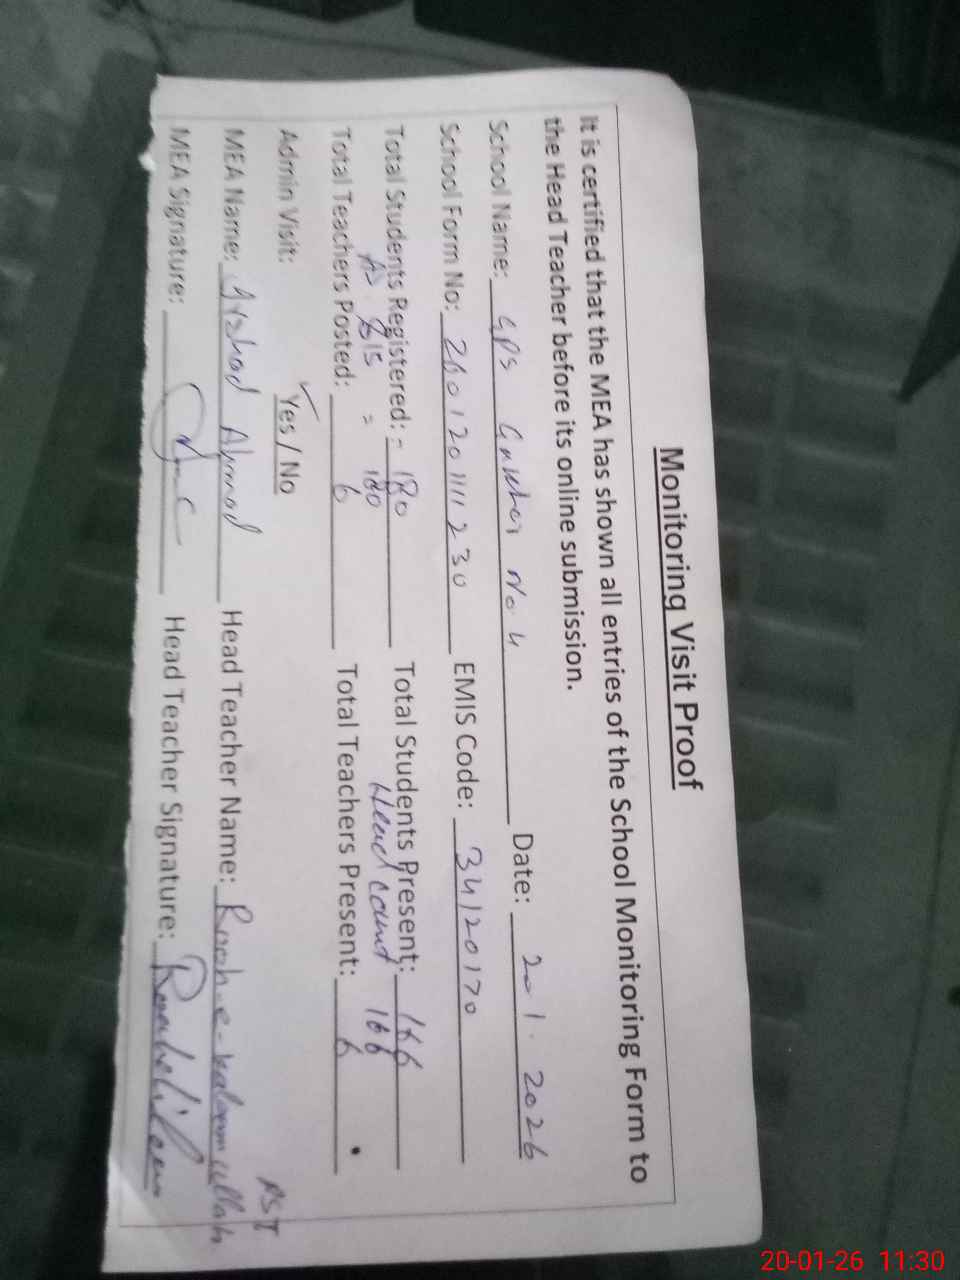 Monitoring Visit Proof
It is certified that the MEA has shown all entries of the School Monitoring Form to
the Head Teacher before its online submission.
School Name: GPS No 4 Date: 20.1.2026
School Form No: 260120111230 EMIS Code: 34120170
Total Students Registered:- 180 Total Students Present: 166
815 = 180 Head count 166
Total Teachers Posted: 6 Total Teachers Present: 6
Admin Visit: Yes / No
MEA Name: Arshad Ahmad Head Teacher Name: Rooh-e-kaleem ullah
MEA Signature: Head Teacher Signature:
20-01-26 11:30